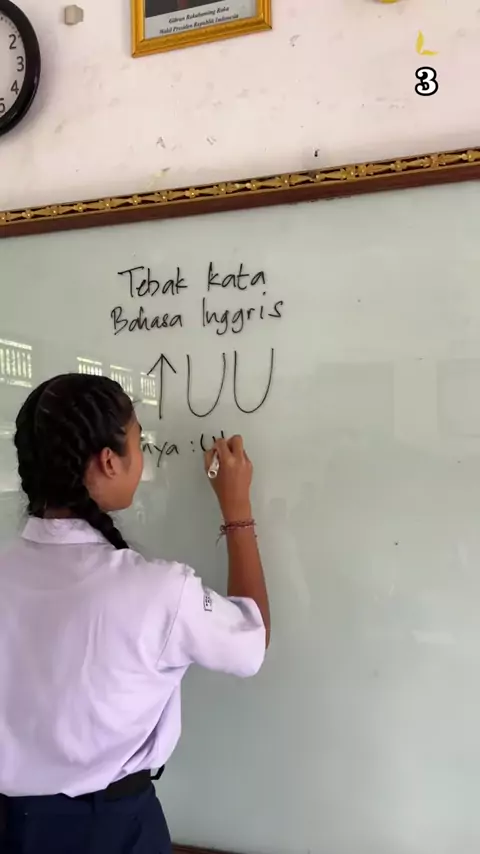 Gibran Rakabuming Raka
Wakil Presiden Republik Indonesia
2
3
4
5
3
Tebak kata
Bahasa Inggris
↑UU
nya :